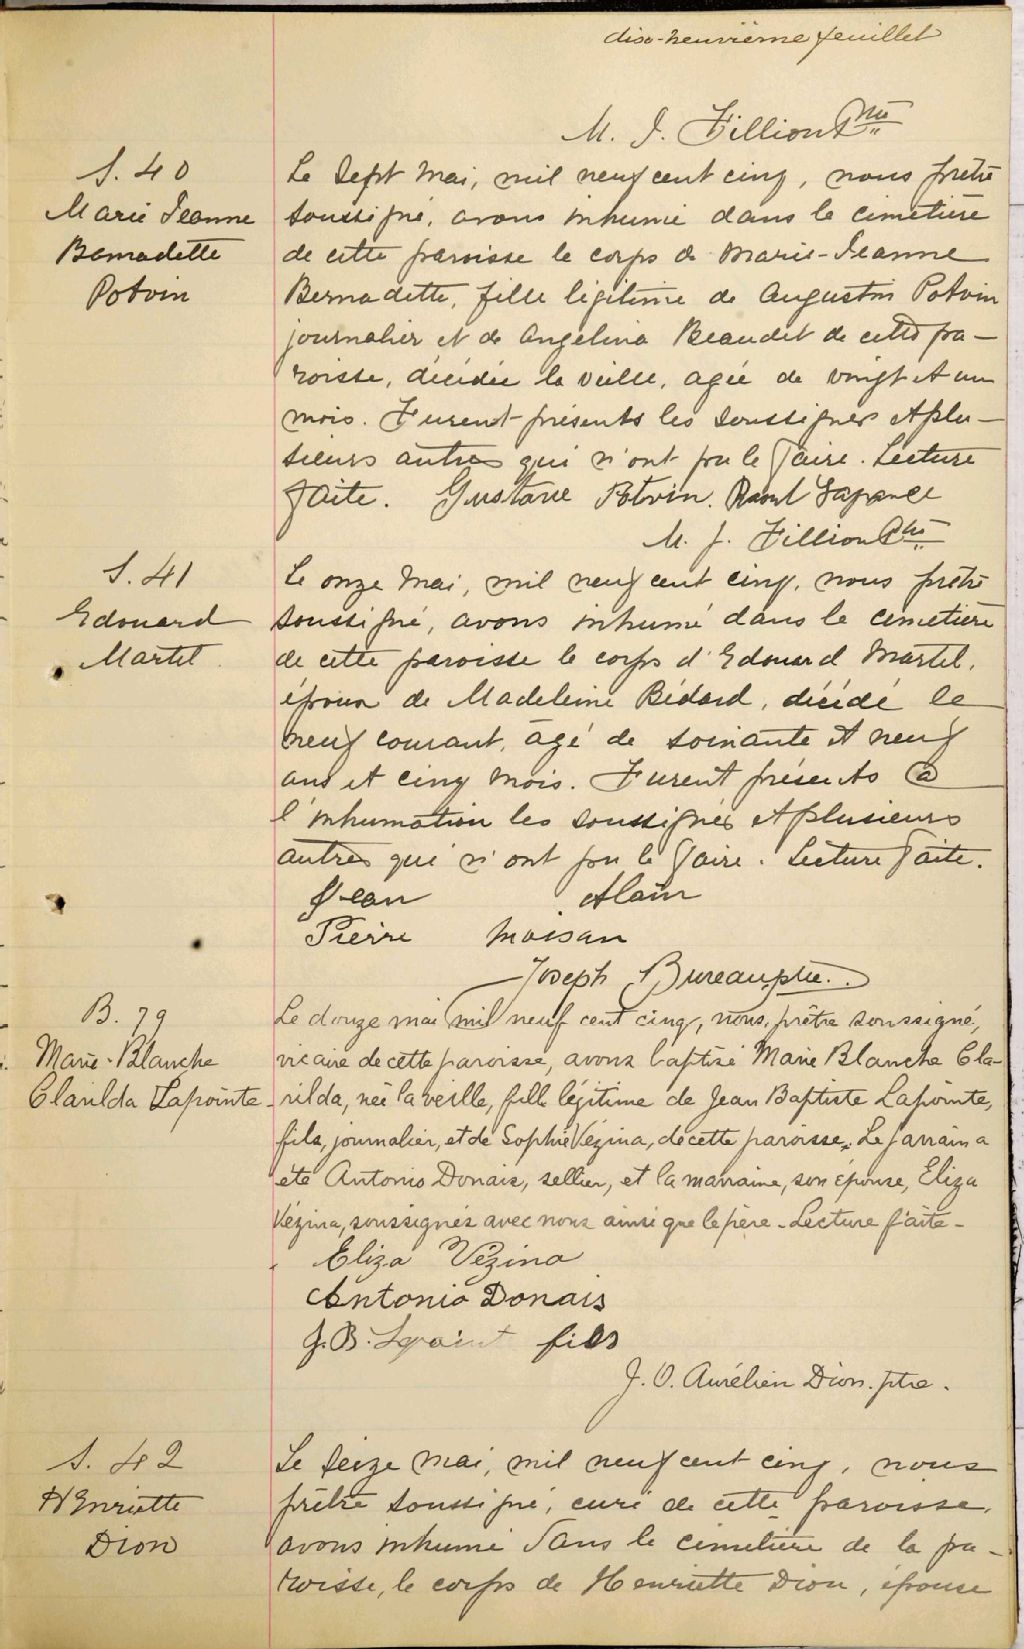 dix-neuvième feuillet
M. J. Fillion Ptre
S. 40
Marie Jeanne
Bernadette
Potvin
Le sept mai, mil neuf cent cinq, nous prêtre
soussigné, avons inhumé dans le cimetière
de cette paroisse le corps de Marie-Jeanne
Bernadette, fille légitime de Augustin Potvin
journalier et de Angelina Beaudet de cette pa-
roisse, décédée la veille, agée de vingt et un
mois. Furent présents les soussignés et plu-
sieurs autres qui n'ont pu le faire. Lecture
faite. Gustave Potvin. Raoul
M. J. Fillion Ptre
S. 41
Edouard
Martel
Le onze mai, mil neuf cent cinq, nous prêtre
soussigné, avons inhumé dans le cimetière
de cette paroisse le corps d'Edouard Martel,
époux de Madeleine Bédard, décédé le
neuf courant, âgé de soixante et neuf
ans et cinq mois. Furent présents à
l'inhumation les soussignés et plusieurs
autres qui n'ont pu le faire. Lecture faite.
Jean Alain
Pierre Moisan
Joseph Bureau, ptre.
B. 79
Marie-Blanche
Clarilda Lapointe
Le douze mai mil neuf cent cinq, nous, prêtre soussigné,
vicaire de cette paroisse, avons baptisé Marie Blanche Cla-
rilda, née la veille, fille légitime de Jean Baptiste Lapointe,
fils, journalier, et de Sophie Vézina, de cette paroisse. Le parrain a
été Antonio Donais, sellier, et la marraine, son épouse, Eliza
Vézina, soussignés avec nous ainsi que le père - Lecture faite -
Eliza Vézina
Antonio Donais
J. B. fils
J. O. Aurélien Dion. ptre.
S. 42
Henriette
Dion
Le seize mai, mil neuf cent cinq, nous
prêtre soussigné, curé de cette paroisse,
avons inhumé dans le cimetière de la pa-
roisse, le corps de Henriette Dion, épouse